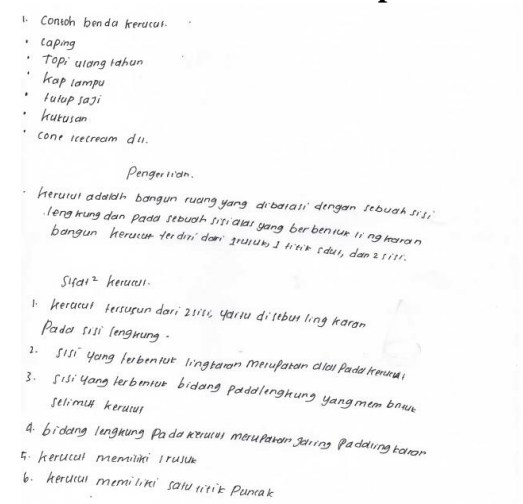 1. Contoh benda kerucut.
• Caping
• Topi ulang tahun
• Kap lampu
• tutup saji
• kukusan
• Cone icecream dll.
Pengertian.
• kerucut adalah bangun ruang yang dibatasi dengan sebuah sisi
lengkung dan pada sebuah sisi alas yang berbentuk lingkaran
bangun kerucut terdiri dari 1 rusuk, 1 titik sdut, dan 2 sisi.
Sifat² kerucut.
1. kerucut tersusun dari 2 sisi, yaitu disebut lingkaran
pada sisi lengkung.
2. sisi yang terbentuk lingkaran merupakan alas pada kerucut
3. sisi yang terbentuk bidang pada lengkung yang membntuk
selimut kerucut
4. bidang lengkung pada kerucut merupakan jaring pada lingkaran
5. kerucut memiliki 1 rusuk
6. kerucut memiliki satu titik Puncak